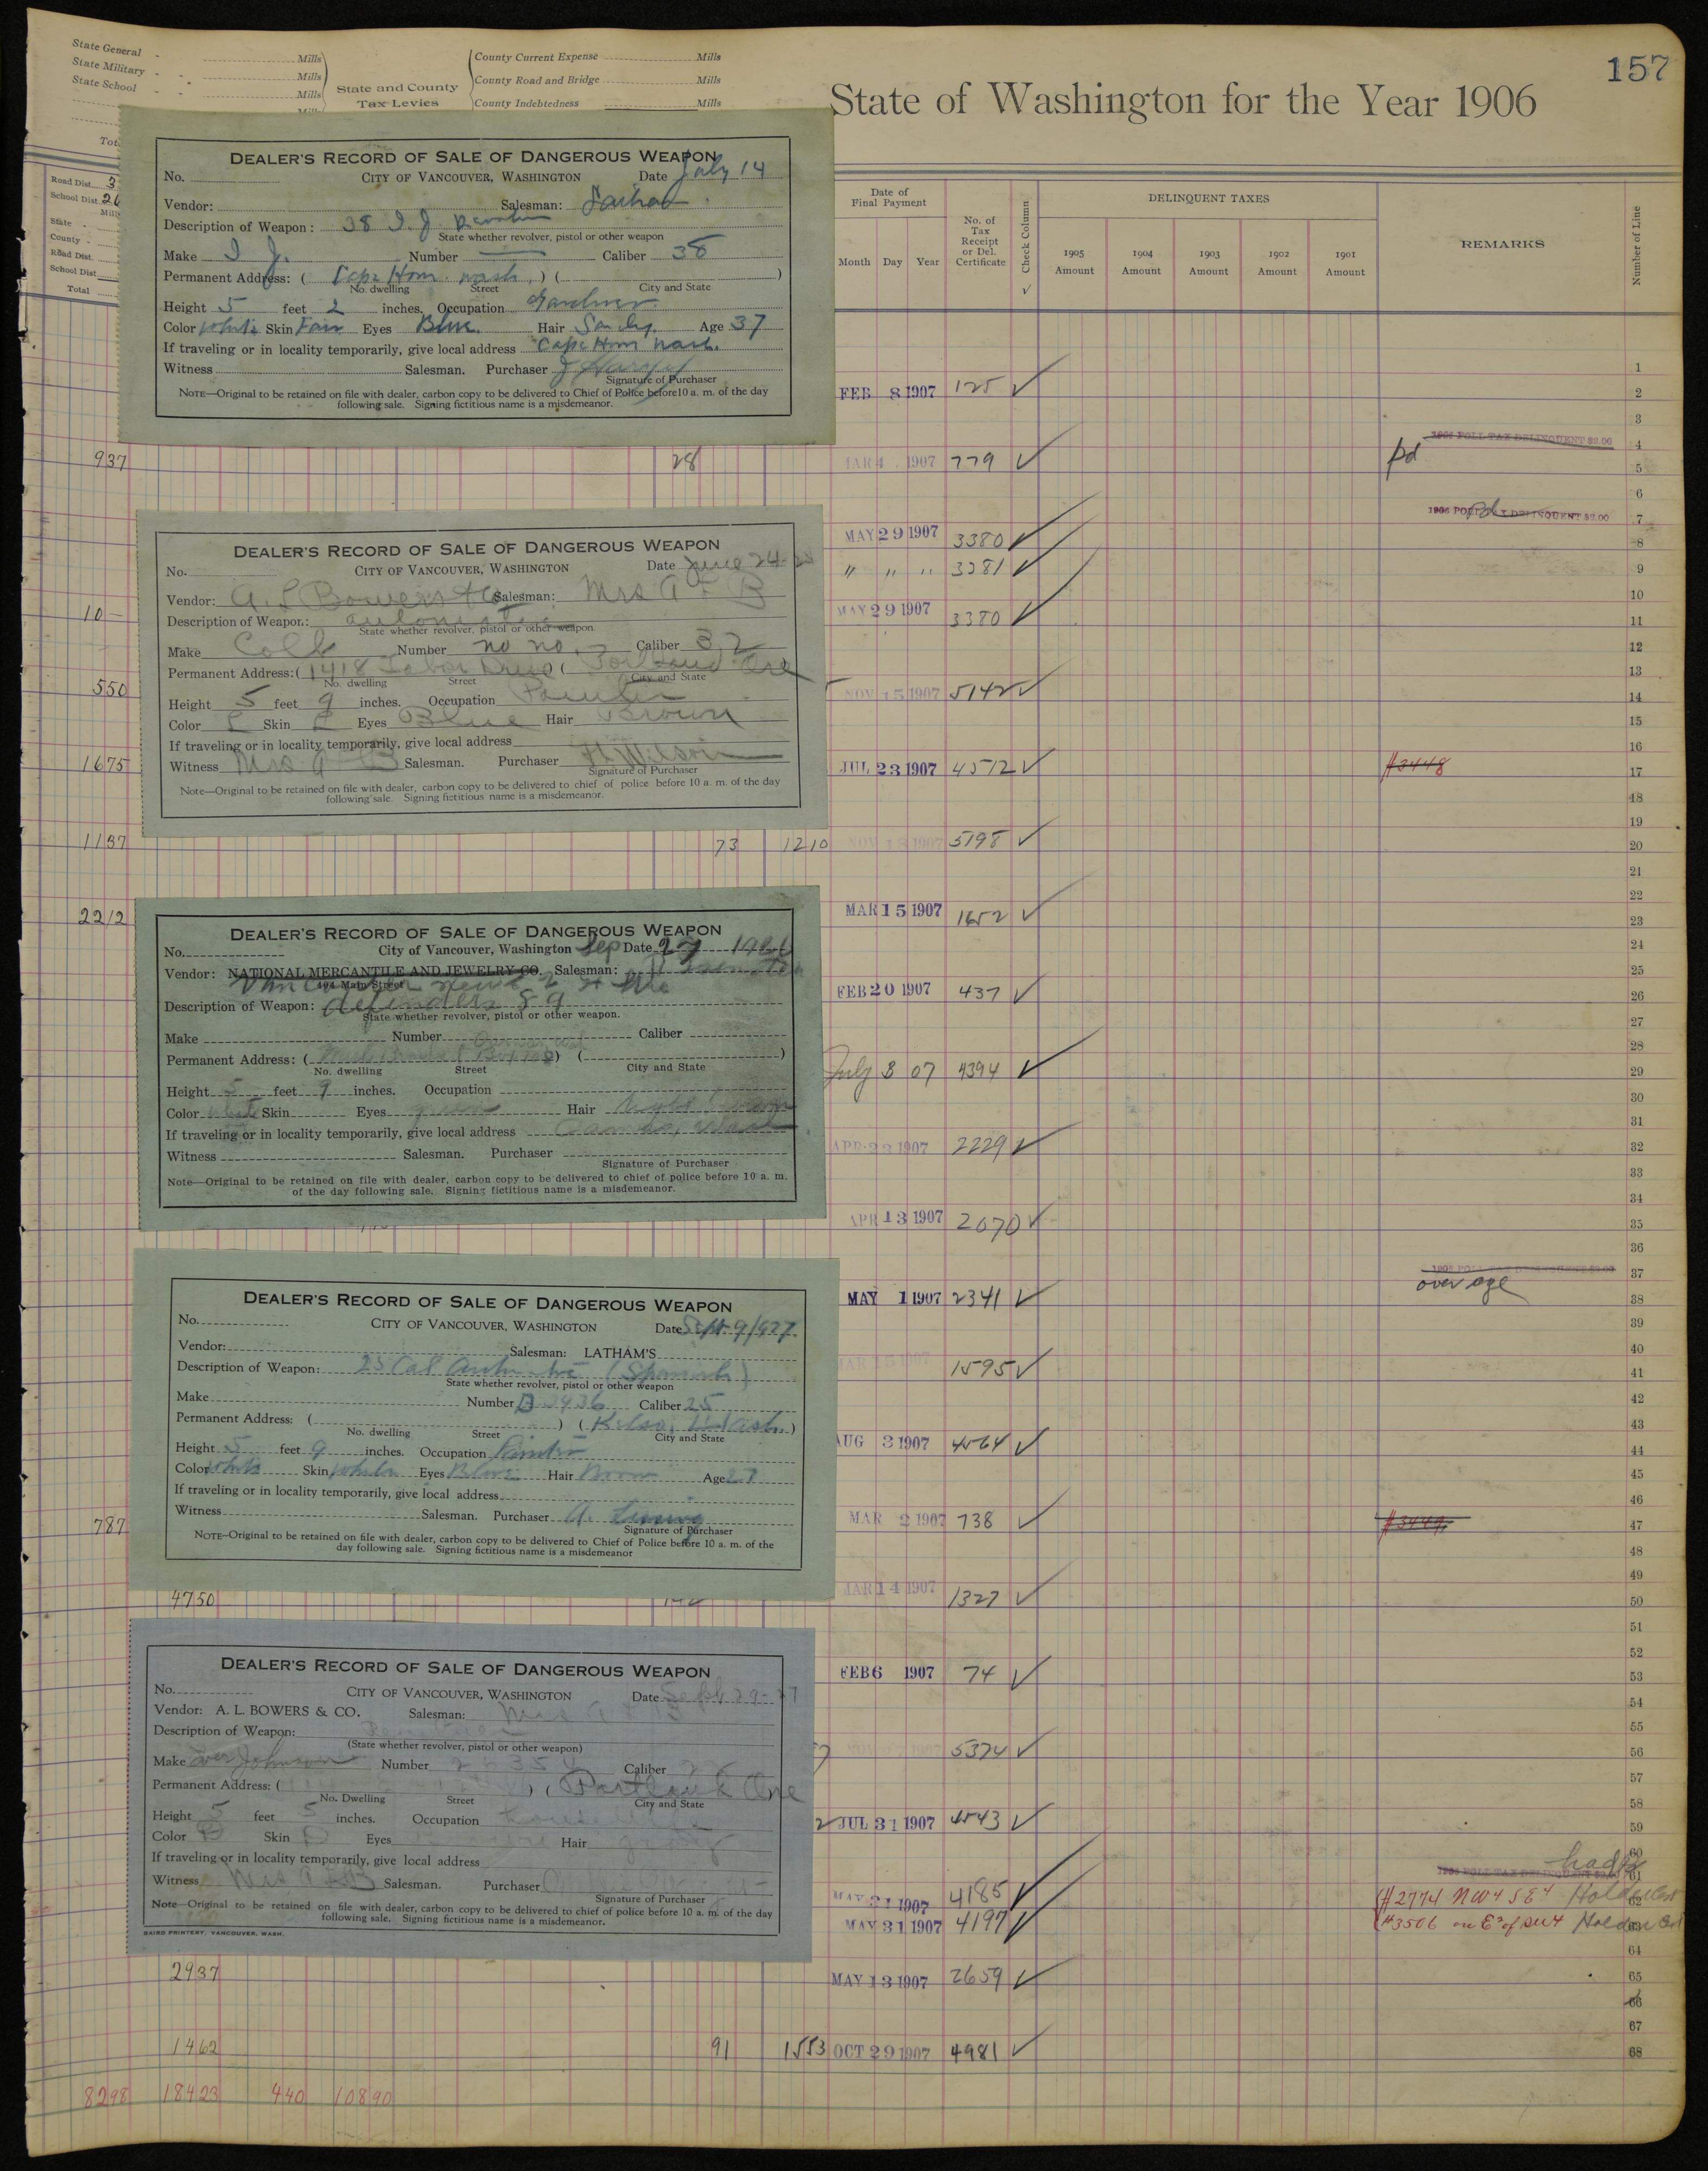 157
State General - Mills
State Military - Mills
State School - Mills
State and County
Tax Levies
County Current Expense Mills
County Road and Bridge Mills
County Indebtedness Mills
State of Washington for the Year 1906
Road Dist. 3
School Dist.
State -
County -
Road Dist.
School Dist
Total
Date of
Final Payment
Month Day Year
No. of
Tax
Receipt
or Del.
Certificate
Check Column
DELINQUENT TAXES
1905 Amount
1904 Amount
1903 Amount
1902 Amount
1901 Amount
REMARKS
Number of Line
DEALER'S RECORD OF SALE OF DANGEROUS WEAPON
No. CITY OF VANCOUVER, WASHINGTON Date July 14
Vendor: Salesman:
Description of Weapon: 38 I. J.
State whether revolver, pistol or other weapon
Make I. J. Number — Caliber 38
Permanent Address: ( Cape Horn Wash. ) ( )
No. dwelling Street City and State
Height 5 feet 2 inches. Occupation Gardner
Color White Skin Fair Eyes Blue. Hair Sandy. Age 37
If traveling or in locality temporarily, give local address Cape Horn Wash.
Witness Salesman. Purchaser
Signature of Purchaser
NOTE—Original to be retained on file with dealer, carbon copy to be delivered to Chief of Police before 10 a. m. of the day
following sale. Signing fictitious name is a misdemeanor.
FEB 8 1907 125 ✓
937 28 MAR 4 1907 779 ✓
1906 POLL TAX DELINQUENT $2.00
pd
1906 POLL TAX DELINQUENT $2.00
Pd
DEALER'S RECORD OF SALE OF DANGEROUS WEAPON
No. CITY OF VANCOUVER, WASHINGTON Date June 24-
Vendor: A. L Bowers & Co Salesman: Mrs A F B
Description of Weapon: automatic
State whether revolver, pistol or other weapon.
Make Colt Number no no. Caliber 32
Permanent Address: ( 1418 ) ( Portland Ore
No. dwelling Street City and State
Height 5 feet 9 inches. Occupation Painter
Color L Skin L Eyes Blue Hair Brown
If traveling or in locality temporarily, give local address
Witness Mrs A F B Salesman. Purchaser H Wilson
Signature of Purchaser
Note—Original to be retained on file with dealer, carbon copy to be delivered to chief of police before 10 a. m. of the day
following sale. Signing fictitious name is a misdemeanor.
MAY 29 1907 3380 ✓
" " " 3381 ✓
10— MAY 29 1907 3380 ✓
550 NOV 15 1907 5142 ✓
1675 JUL 23 1907 4572 ✓ #3448
1137 73 1210 1907 5198 ✓
2212 MAR 15 1907 1652 ✓
DEALER'S RECORD OF SALE OF DANGEROUS WEAPON
No. City of Vancouver, Washington Sep Date 27
Vendor: NATIONAL MERCANTILE AND JEWELRY CO. Salesman:
404 Main Street
Vancouver
Description of Weapon: defenders 89
State whether revolver, pistol or other weapon.
Make Number Caliber
Permanent Address: ( ) ( )
No. dwelling Street City and State
Height 5 feet 9 inches. Occupation
Color White Skin Eyes Hair
If traveling or in locality temporarily, give local address Camas, Wash
Witness Salesman. Purchaser
Signature of Purchaser
Note—Original to be retained on file with dealer, carbon copy to be delivered to chief of police before 10 a. m.
of the day following sale. Signing fictitious name is a misdemeanor.
FEB 20 1907 437 ✓
July 8 07 4394 ✓
APR 23 1907 2229 ✓
APR 13 1907 2070 ✓
DEALER'S RECORD OF SALE OF DANGEROUS WEAPON
No. CITY OF VANCOUVER, WASHINGTON Date Sept 9/1927.
Vendor: Salesman: LATHAM'S
Description of Weapon: 25 Cal Automatic (Spanish)
State whether revolver, pistol or other weapon
Make Number Caliber 25
Permanent Address: ( ) ( Kelso, Wash. )
No. dwelling Street City and State
Height 5 feet 9 inches. Occupation Painter
Color White Skin White Eyes Blue Hair Brown Age 27
If traveling or in locality temporarily, give local address
Witness Salesman. Purchaser A.
Signature of Purchaser
NOTE—Original to be retained on file with dealer, carbon copy to be delivered to Chief of Police before 10 a. m. of the
day following sale. Signing fictitious name is a misdemeanor
1906 POLL TAX DELINQUENT $2.00
over age
MAY 1 1907 2341 ✓
MAR 15 1907 1595 ✓
AUG 3 1907 4564 ✓
787 MAR 2 1907 738 ✓ #3449
4750 142 MAR 14 1907 1327 ✓
DEALER'S RECORD OF SALE OF DANGEROUS WEAPON
No. CITY OF VANCOUVER, WASHINGTON Date Sept 29-27
Vendor: A. L. BOWERS & CO. Salesman: Mrs A F B
Description of Weapon:
(State whether revolver, pistol or other weapon)
Make Iver Johnson Number Caliber
Permanent Address: ( ) ( Portland Ore
No. Dwelling Street City and State
Height 5 feet 5 inches. Occupation
Color B Skin D Eyes Hair
If traveling or in locality temporarily, give local address
Witness Mrs A F B Salesman. Purchaser
Signature of Purchaser
Note—Original to be retained on file with dealer, carbon copy to be delivered to chief of police before 10 a. m. of the day
following sale. Signing fictitious name is a misdemeanor.
BAIRD PRINTERY, VANCOUVER, WASH.
FEB 6 1907 74 ✓
5374 ✓
JUL 31 1907 4543 ✓
1906 POLL TAX DELINQUENT $2.00
MAY 31 1907 4185 ✓ #2774 NW4 SE4
MAY 31 1907 4197 ✓ #3506 on E2 of SW4 Holden
2937 MAY 13 1907 2659 ✓
1462 91 1553 OCT 29 1907 4981 ✓
8298 18423 440 10890
1
2
3
4
5
6
7
8
9
10
11
12
13
14
15
16
17
18
19
20
21
22
23
24
25
26
27
28
29
30
31
32
33
34
35
36
37
38
39
40
41
42
43
44
45
46
47
48
49
50
51
52
53
54
55
56
57
58
59
60
61
62
63
64
65
66
67
68